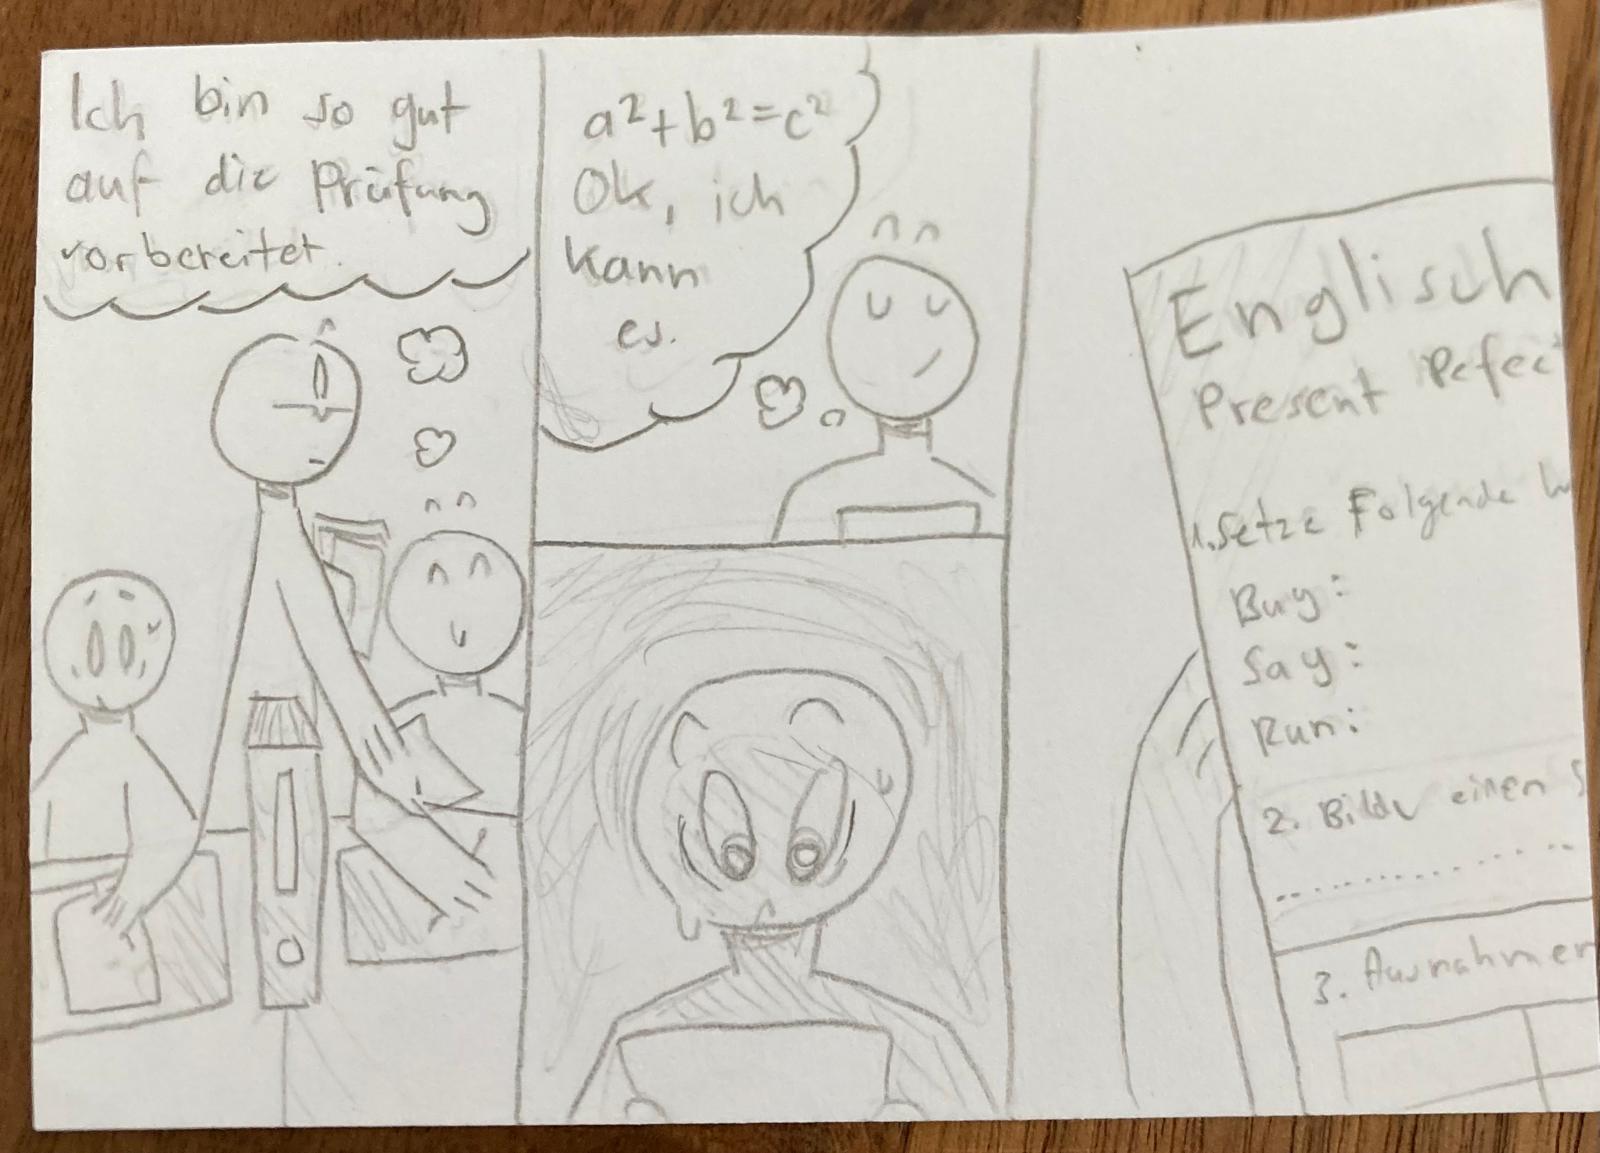 Ich bin so gut
auf die Prüfung
vorbereitet.
a²+b²=c²
Ok, ich
kann
es.
Englisch
Present Pefec
1. Setze Folgende
Buy:
Say:
Run:
2. Bilde einen S
..............
3. Ausnahmen